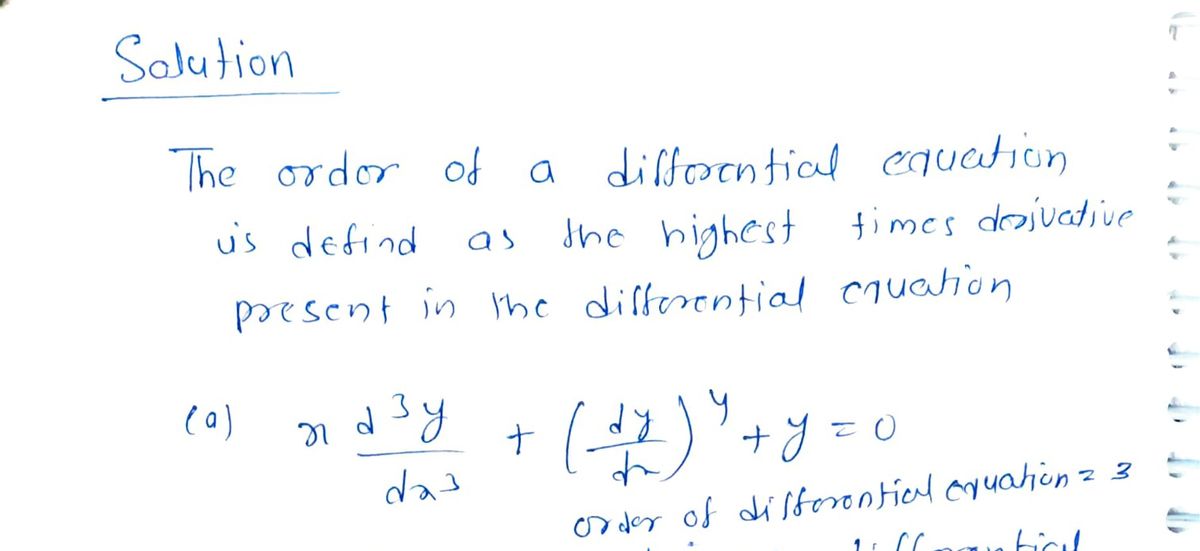 Solution
The order of a differential equation
is defind as the highest times derivative
present in the differential equation
(a) x d³y/dx³ + (dy/dx)⁴ + y = 0
order of differential equation = 3
differential